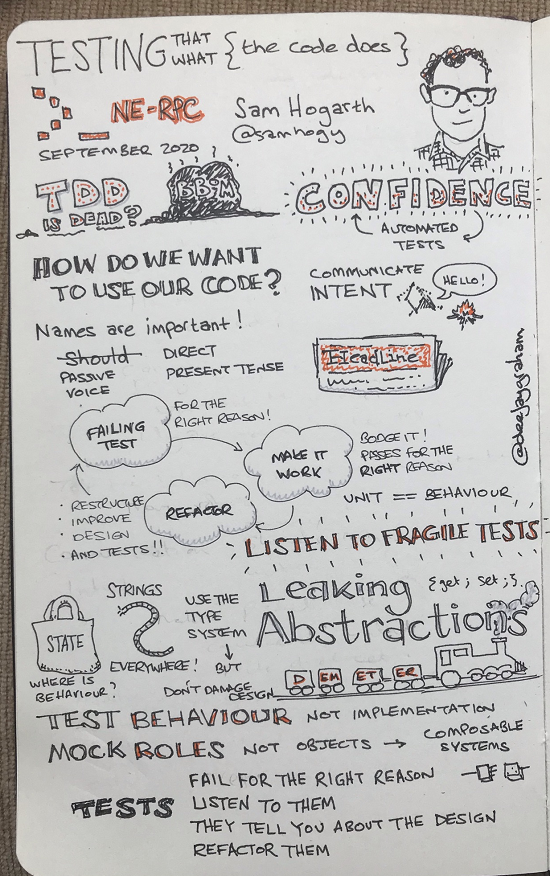 TESTING THAT WHAT {the code does}
NE-RPC
Sam Hogarth
@samhogy
SEPTEMBER 2020
TDD
IS DEAD?
BBoM
CONFIDENCE
AUTOMATED
TESTS
HOW DO WE WANT
TO USE OUR CODE?
COMMUNICATE
INTENT
HELLO!
Names are important!
Should
PASSIVE
VOICE
DIRECT
PRESENT TENSE
HeadLine
@deejaygraham
FAILING
TEST
FOR THE
RIGHT REASON!
MAKE IT
WORK
BODGE IT!
PASSES FOR THE
RIGHT REASON
REFACTOR
· RESTRUCTURE
· IMPROVE
· DESIGN
· AND TESTS!!
UNIT == BEHAVIOUR
LISTEN TO FRAGILE TESTS
STATE
WHERE IS
BEHAVIOUR?
STRINGS
EVERYWHERE!
USE THE
TYPE
SYSTEM
BUT
DON'T DAMAGE
DESIGN
Leaking {get; set;}.
Abstractions
D EM ET ER
TEST BEHAVIOUR NOT IMPLEMENTATION
MOCK ROLES NOT OBJECTS → COMPOSABLE
SYSTEMS
TESTS
FAIL FOR THE RIGHT REASON
LISTEN TO THEM
THEY TELL YOU ABOUT THE DESIGN
REFACTOR THEM